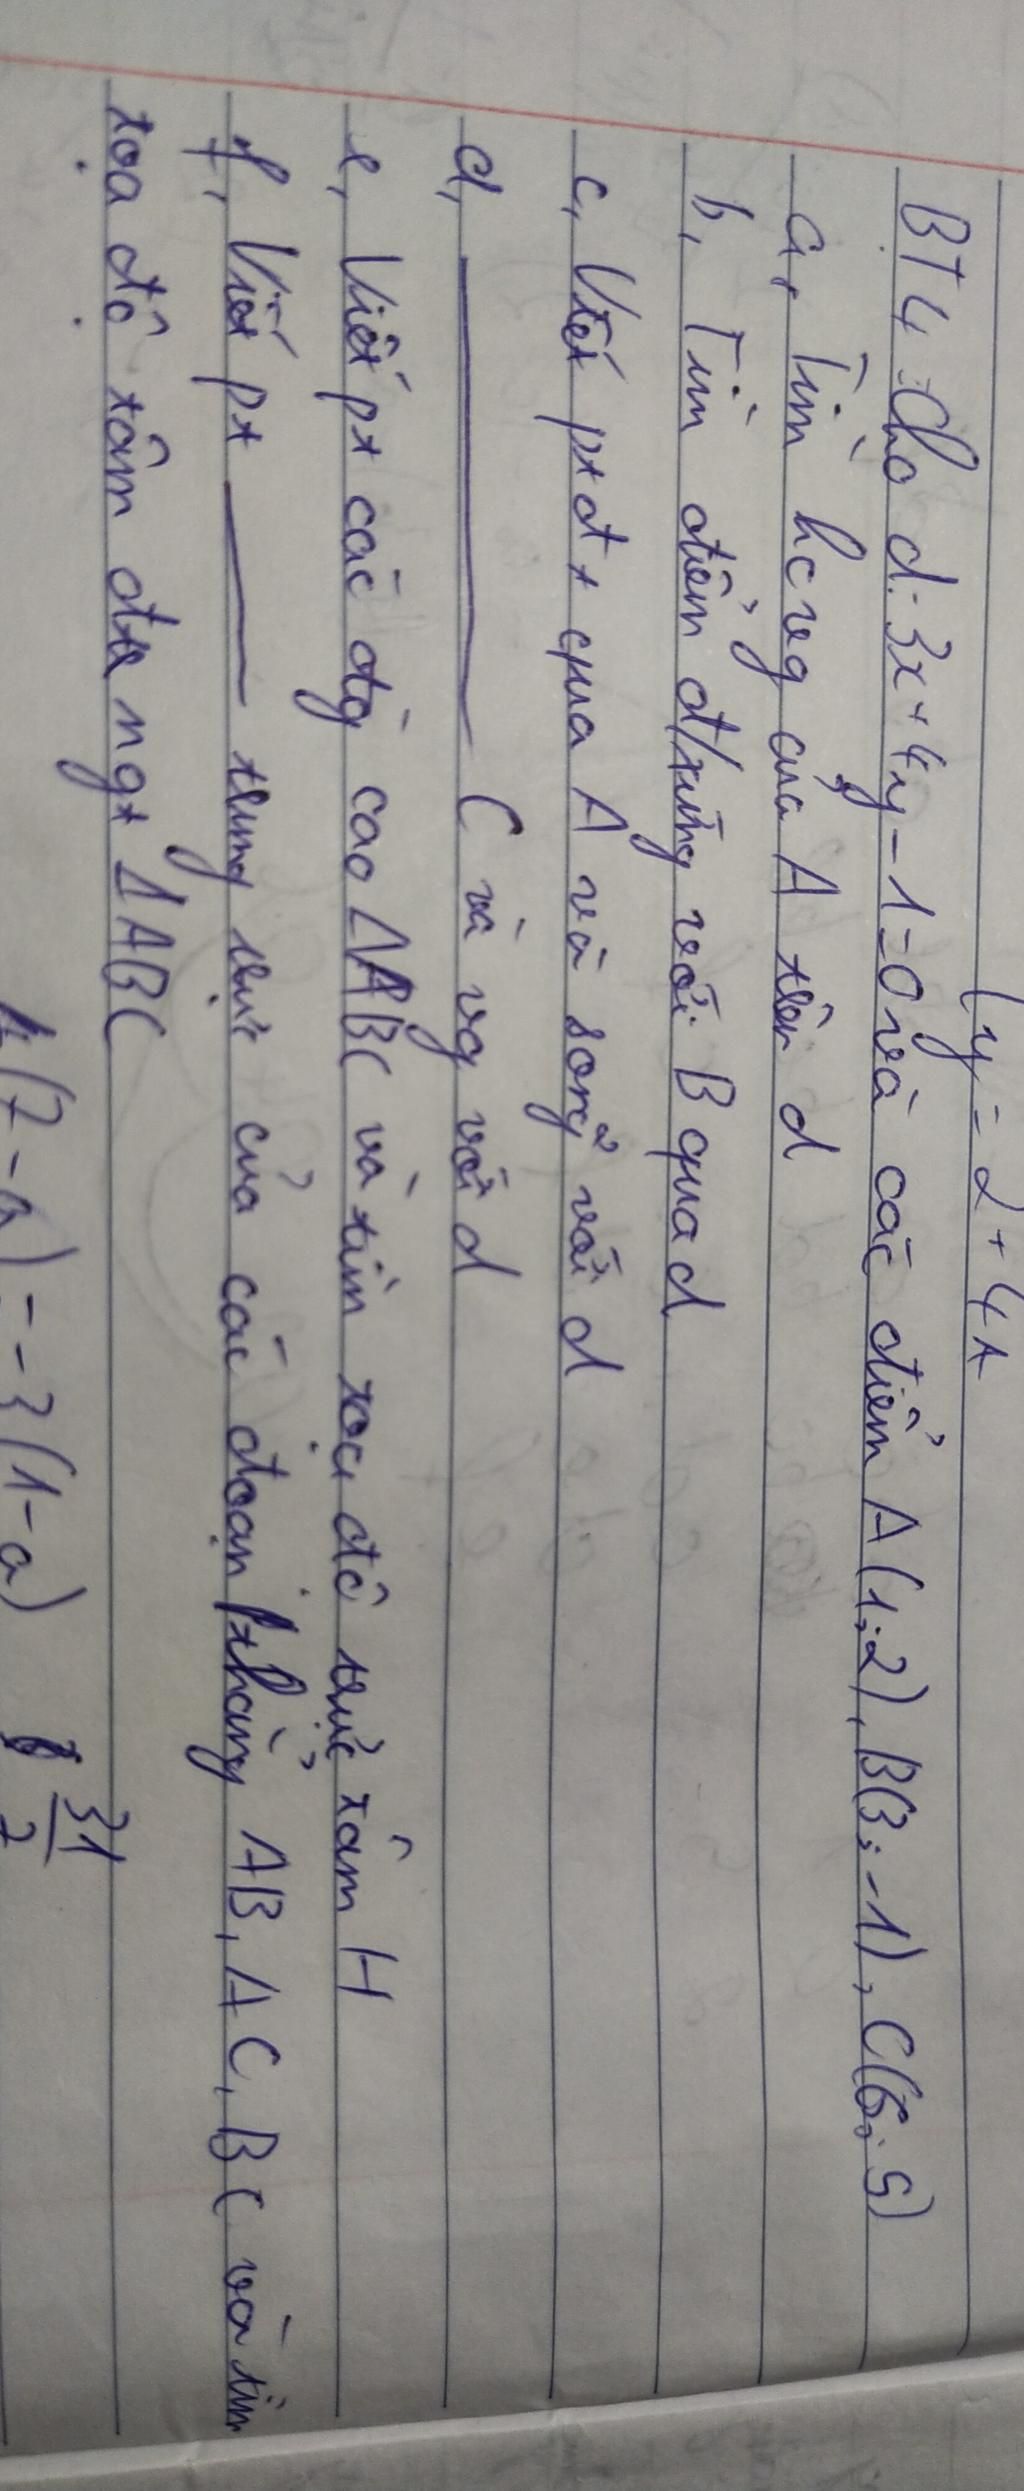 y = 2 + 4t
BT4: Cho d: 3x + 4y - 1 = 0 và các điểm A(1;2), B(3;-1), C(6;5)
a, Tìm hcvg của A trên d
b, Tìm điểm đ/xứng với B qua d
c, Viết ptđt qua A và song² với d
d, ——— C và vg với d
e, Viết pt các đg cao ΔABC và tìm tọa độ trực tâm H
f, Viết pt ——— trung trực của các đoạn thẳng AB, AC, BC và tìm
tọa độ tâm đtr ngt ΔABC
(7 - a) = -3(1-a)
31